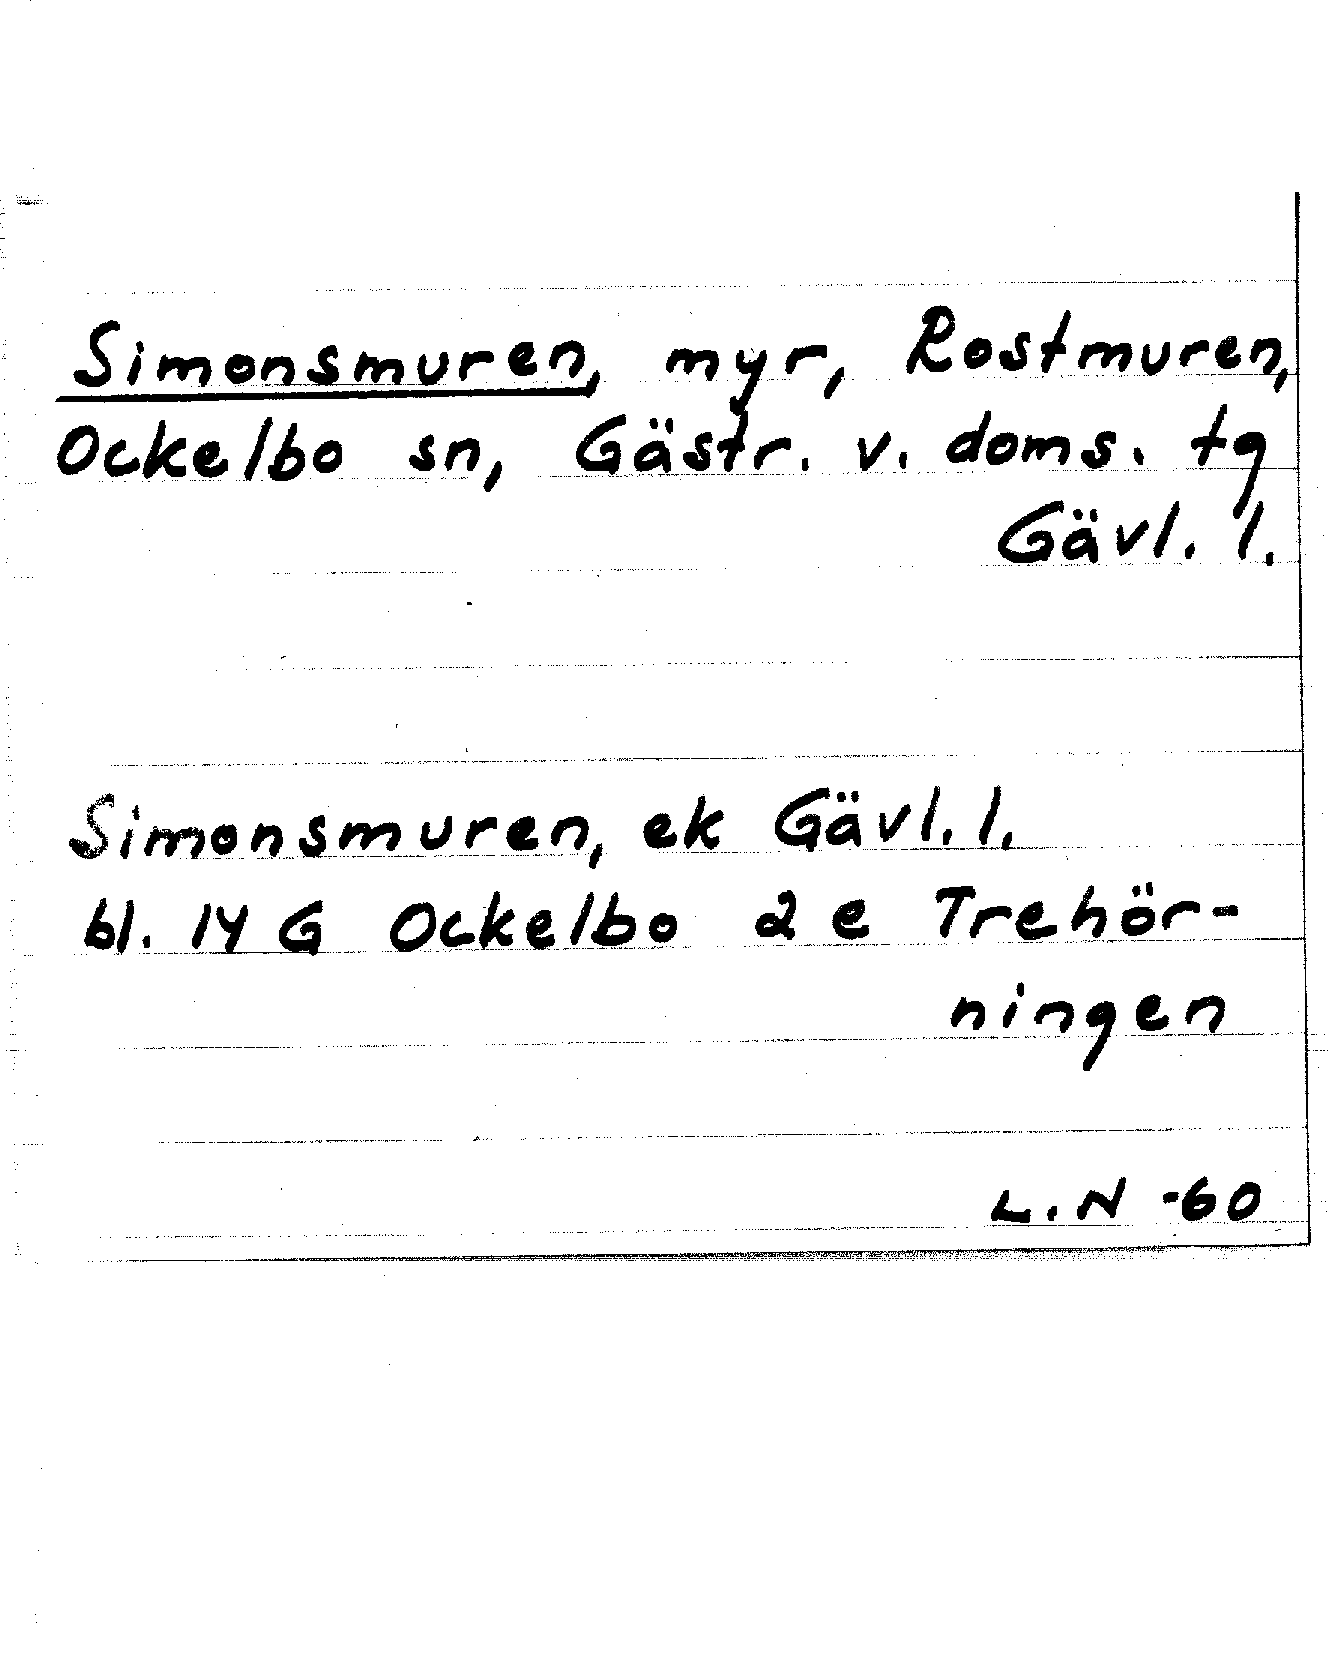 Simonsmuren, myr, Rostmuren,
Ockelbo sn, Gästr. v. doms. tg
Gävl. l.
Simonsmuren, ek Gävl. l.
bl. 14 G Ockelbo 2 e Trehör-
ningen
L.N -60